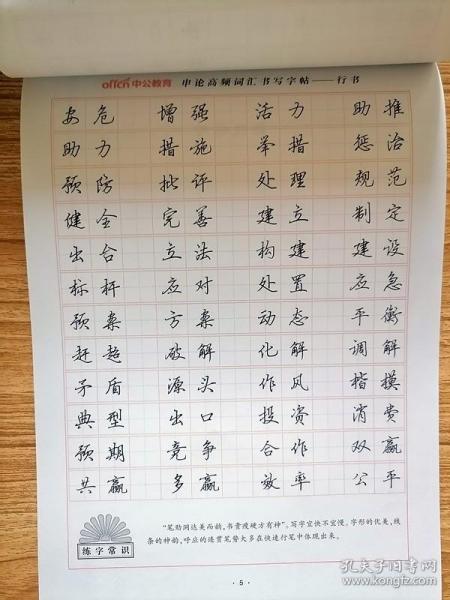 offcn中公教育 申论高频词汇书写字帖——行书
安危 增强 活力 助推
助力 措施 举措 惩治
预防 批评 处理 规范
健全 完善 建立 制定
出台 立法 构建 建设
标杆 应对 处置 应急
预案 方案 动态 平衡
赶超 破解 化解 调解
矛盾 源头 作风 楷模
典型 出口 投资 消费
预期 竞争 合作 双赢
共赢 多赢 效率 公平
练字常识
“笔助润达美而韵,书贵瘦硬方有神”。写字宜快不宜慢。字形的优美,线
条的神韵,呼应的连贯笔势大多在快速行笔中体现出来。
·5·
孔夫子旧书网
www.kongfz.com